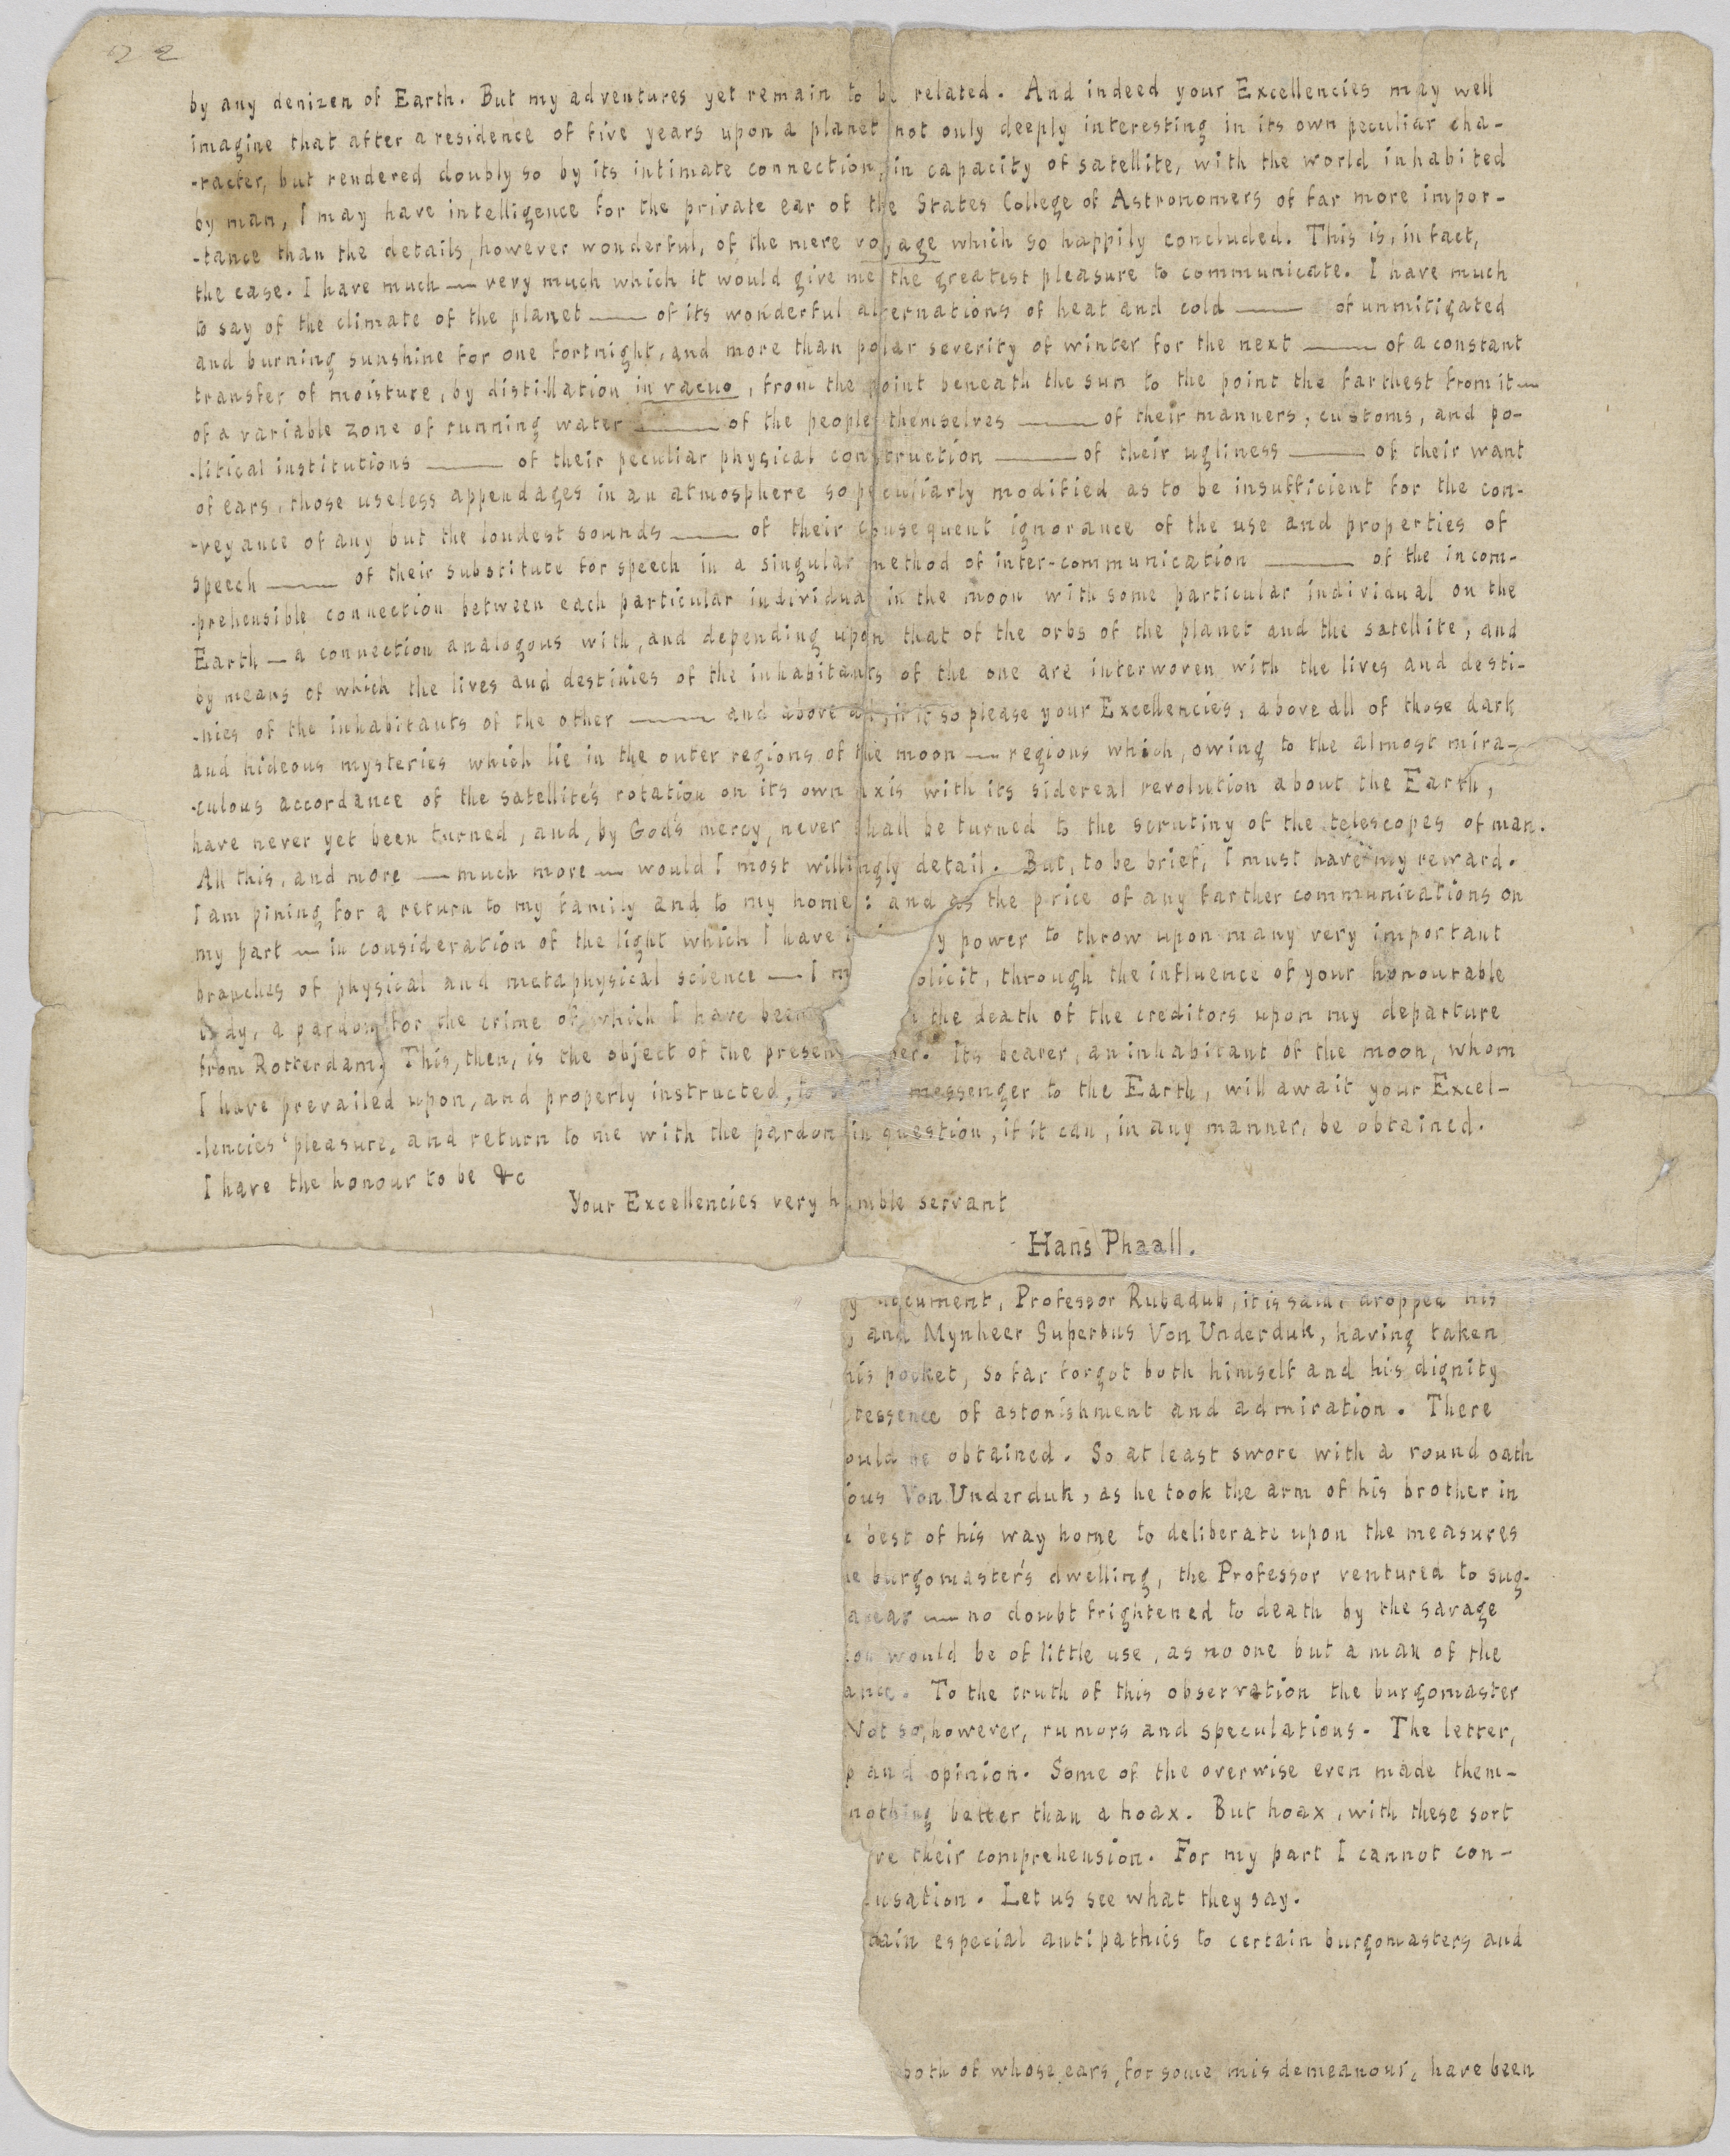 22
by any denizen of Earth. But my adventures yet remain to be related. And indeed your Excellencies may well
imagine that after a residence of five years upon a planet not only deeply interesting in its own peculiar cha-
-racter, but rendered doubly so by its intimate connection, in capacity of satellite, with the world inhabited
by man, I may have intelligence for the private ear of the States College of Astronomers of far more impor-
-tance than the details, however wonderful, of the mere voyage which so happily concluded. This is, in fact,
the case. I have much — very much which it would give me the greatest pleasure to communicate. I have much
to say of the climate of the planet — of its wonderful alternations of heat and cold — of unmitigated
and burning sunshine for one fortnight, and more than polar severity of winter for the next — of a constant
transfer of moisture, by distillation in vacuo, from the point beneath the sun to the point the farthest from it —
of a variable zone of running water — of the people themselves — of their manners, customs, and po-
-litical institutions — of their peculiar physical construction — of their ugliness — of their want
of ears, those useless appendages in an atmosphere so peculiarly modified as to be insufficient for the con-
-veyance of any but the loudest sounds — of their consequent ignorance of the use and properties of
speech — of their substitute for speech in a singular method of inter-communication — of the incom-
-prehensible connection between each particular individual in the moon with some particular individual on the
Earth — a connection analogous with, and depending upon that of the orbs of the planet and the satellite, and
by means of which the lives and destinies of the inhabitants of the one are interwoven with the lives and desti-
-nies of the inhabitants of the other — and above all, if it so please your Excellencies, above all of those dark
and hideous mysteries which lie in the outer regions of the moon — regions which, owing to the almost mira-
-culous accordance of the satellite's rotation on its own axis with its sidereal revolution about the Earth,
have never yet been turned, and, by God's mercy, never shall be turned to the scrutiny of the telescopes of man.
All this, and more — much more — would I most willingly detail. But, to be brief, I must have my reward.
I am pining for a return to my family and to my home: and as the price of any farther communications on
my part — in consideration of the light which I have i y power to throw upon many very important
branches of physical and metaphysical science — I m olicit, through the influence of your honourable
body, a pardon for the crime of which I have been the death of the creditors upon my departure
from Rotterdam. This, then, is the object of the presen per. Its bearer, an inhabitant of the moon, whom
I have prevailed upon, and properly instructed, to messenger to the Earth, will await your Excel-
-lencies' pleasure, and return to me with the pardon in question, if it can, in any manner, be obtained.
I have the honour to be &c
Your Excellencies very humble servant
Hans Phaall.
y document, Professor Rubadub, it is said, dropped his
, and Mynheer Superbus Von Underduk, having taken
his pocket, so far forgot both himself and his dignity
tessence of astonishment and admiration. There
ould be obtained. So at least swore with a round oath
ious Von Underduk, as he took the arm of his brother in
e best of his way home to deliberate upon the measures
he burgomaster's dwelling, the Professor ventured to sug-
appear — no doubt frightened to death by the savage
on would be of little use, as no one but a man of the
ance. To the truth of this observation the burgomaster
Not so, however, rumors and speculations. The letter,
p and opinion. Some of the overwise even made them-
nothing better than a hoax. But hoax, with these sort
ve their comprehension. For my part I cannot con-
usation. Let us see what they say.
tain especial antipathies to certain burgomasters and
both of whose ears, for some misdemeanour, have been